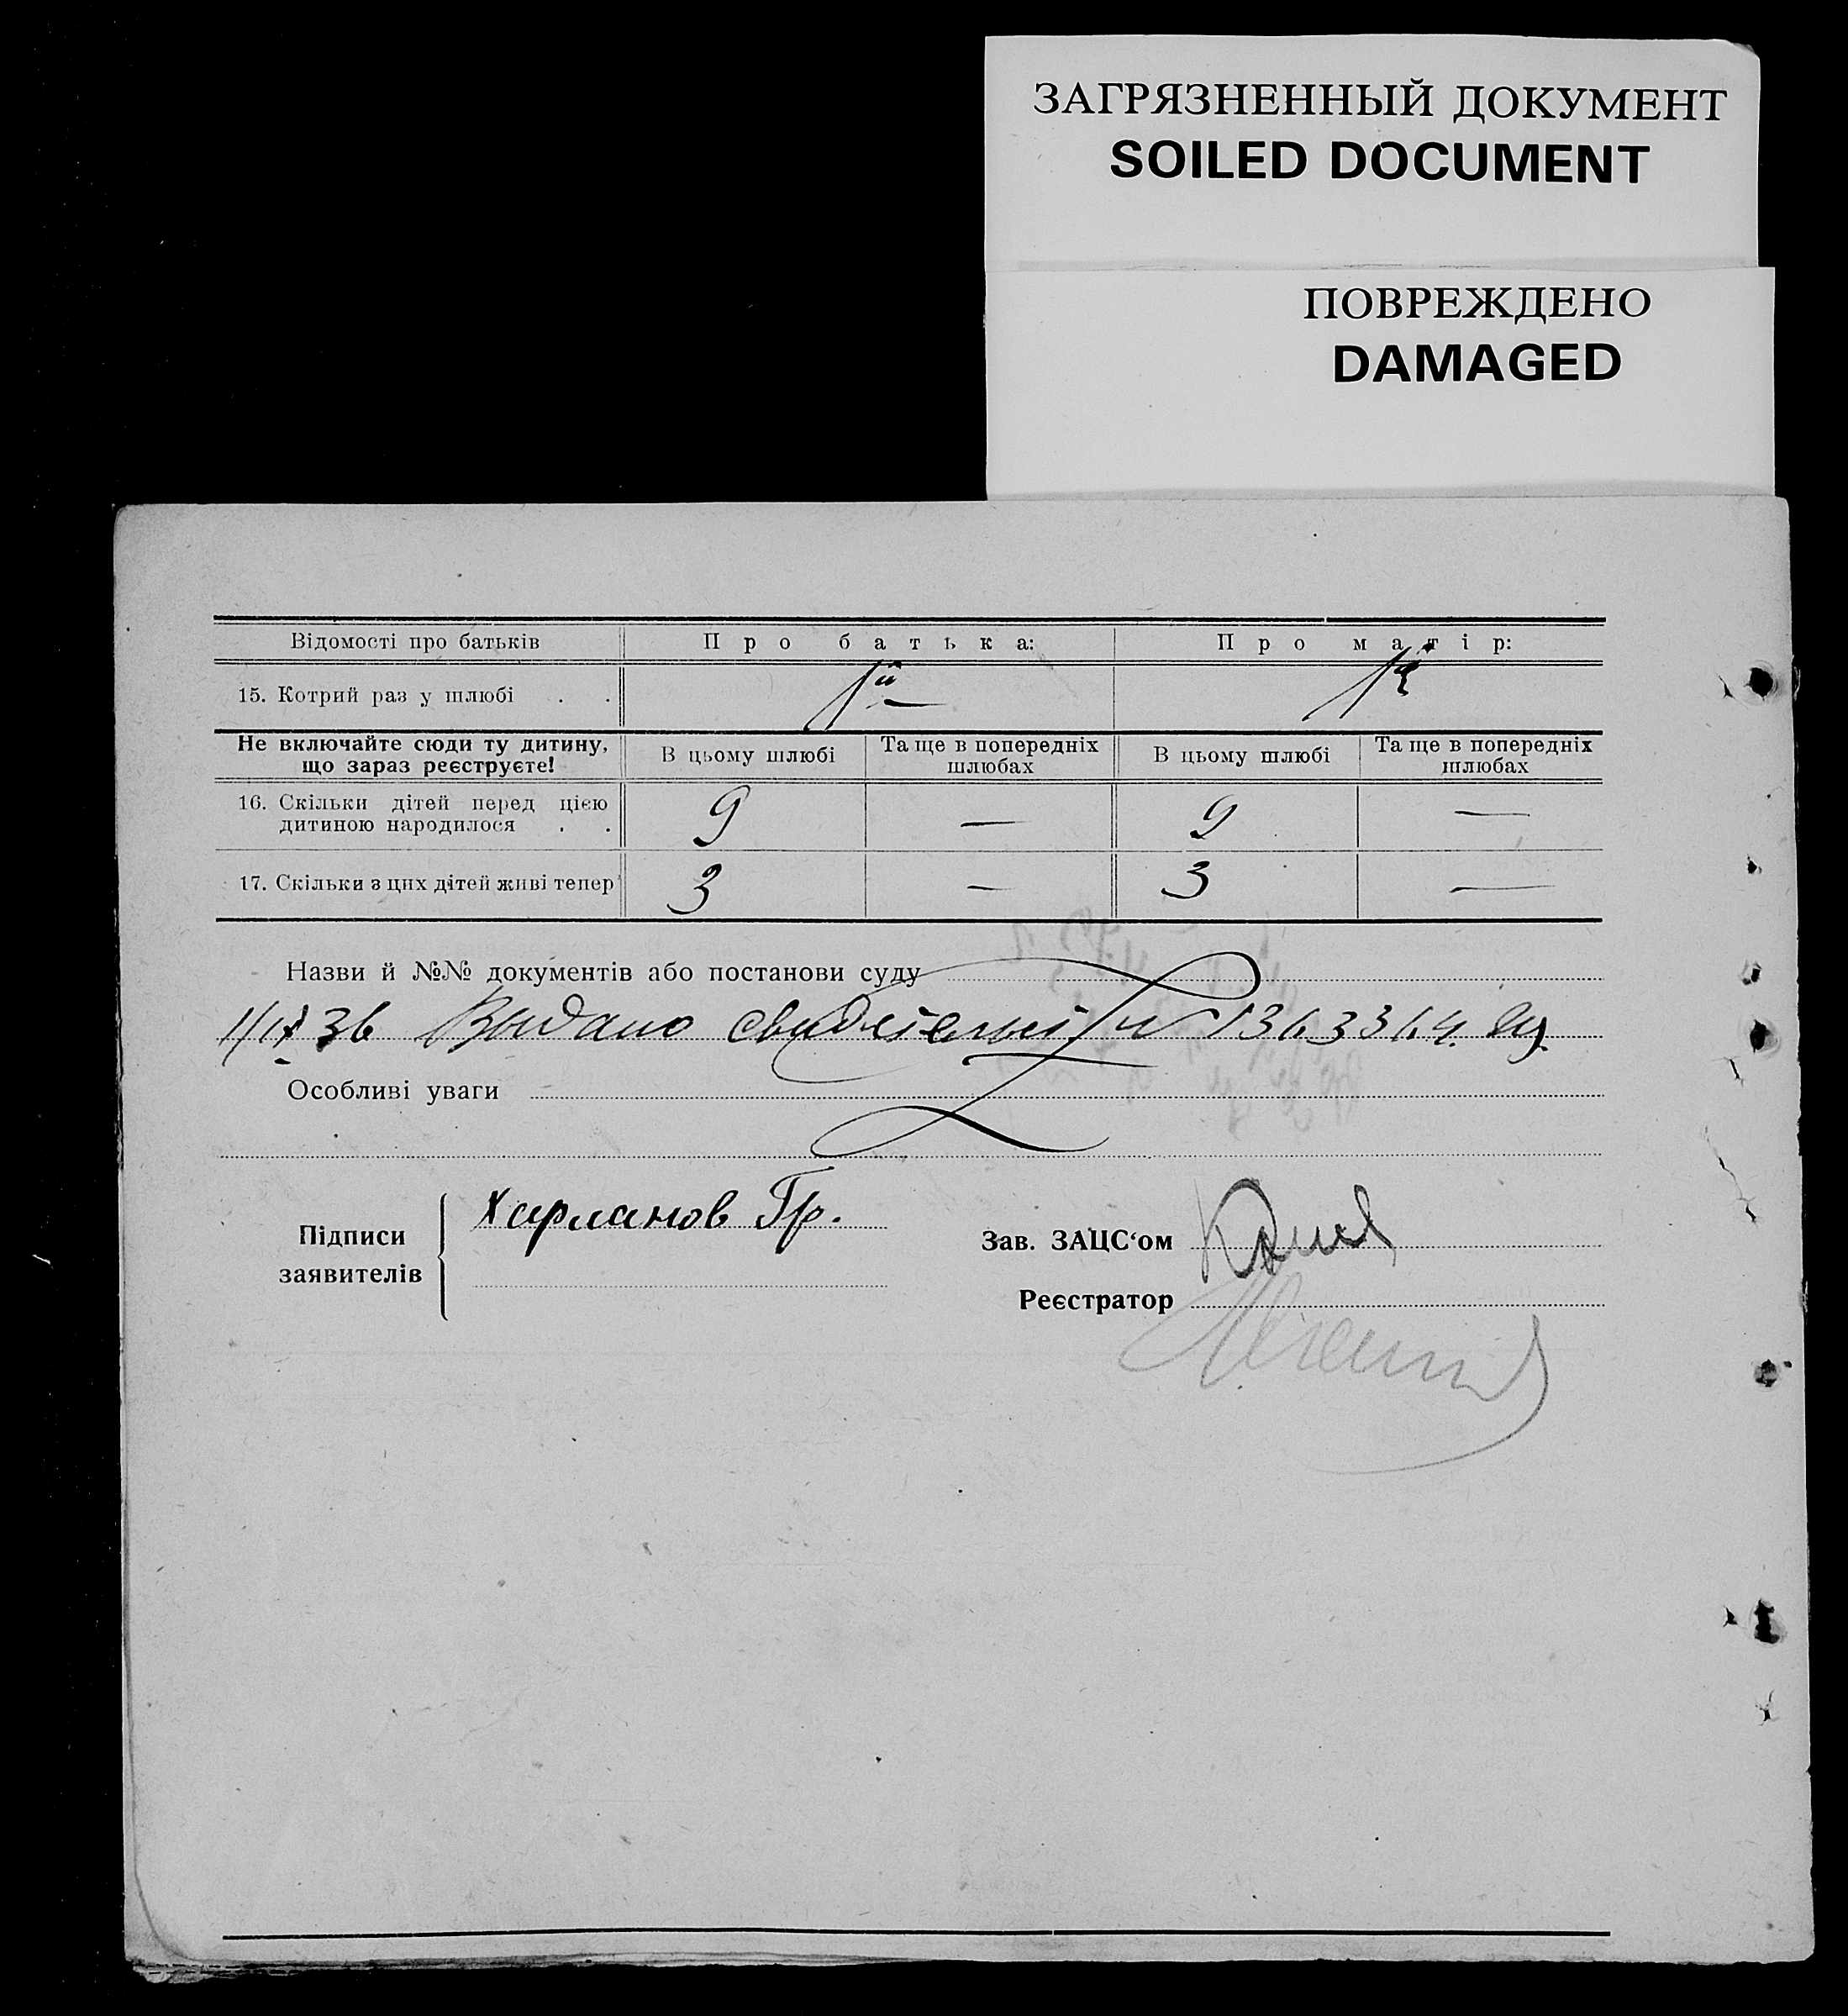 ЗАГРЯЗНЕННЫЙ ДОКУМЕНТ
SOILED DOCUMENT
ПОВРЕЖДЕНО
DAMAGED
Відомості про батьків Про батька: Про матір:
15. Котрий раз у шлюбі . .
Не включайте сюди ту дитину, що зараз реєструєте! В цьому шлюбі Та ще в попередніх шлюбах В цьому шлюбі Та ще в попередніх шлюбах
16. Скільки дітей перед цією дитиною народилося . . 9 — 9 —
17. Скільки з цих дітей живі тепер 3 — 3 —
Назви й №№ документів або постанови суду
36 Выдано
Особливі уваги
Підписи заявителів
Харланов Гр.
Зав. ЗАЦС‘ом
Реєстратор